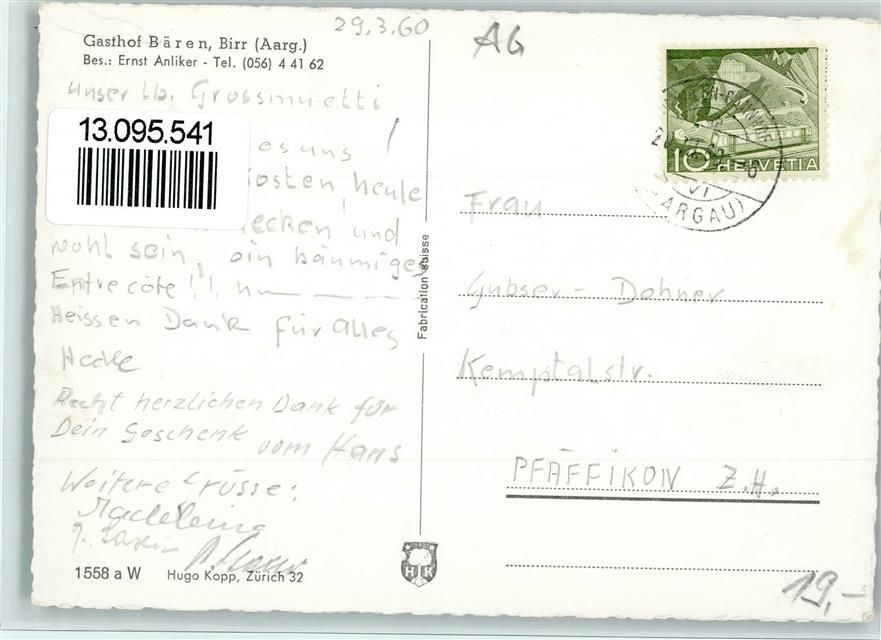 29.3.60
AG
Gasthof Bären, Birr (Aarg.)
Bes.: Ernst Anliker - Tel. (056) 4 41 62
Unser lb. Grossmuetti
13.095.541
es uns !
Kosten, heute
ecken, und
wohl sein, ein bäumiges
Entrecôte!!
Heissen Dank für alles
Recht herzlichen Dank für
Dein Geschenk vom Hans
Weitere Grüsse:
Madeleine
1558 a W Hugo Kopp, Zürich 32
Fabrication suisse
HK
10 HELVETIA
(AARGAU)
Frau
Gubser - Dohner
Kemptalstr.
PFÄFFIKON Z.H.
19,-